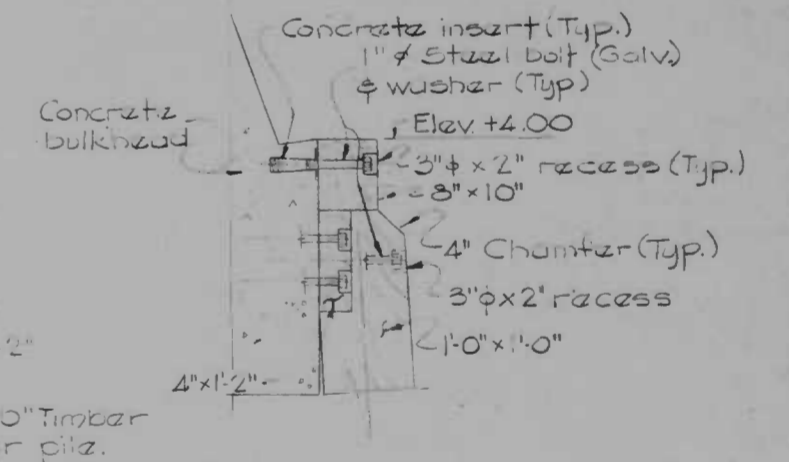 Concrete insert (Typ.)
1" ϕ Steel bolt (Galv.)
& washer (Typ)
Concrete
bulkhead
Elev. +4.00
3"ϕ x 2" recess (Typ.)
8" x 10"
4" Chamfer (Typ.)
3"ϕ x 2" recess
1'-0" x 1'-0"
2"
4" x 1'-2"
0" Timber
r pile.